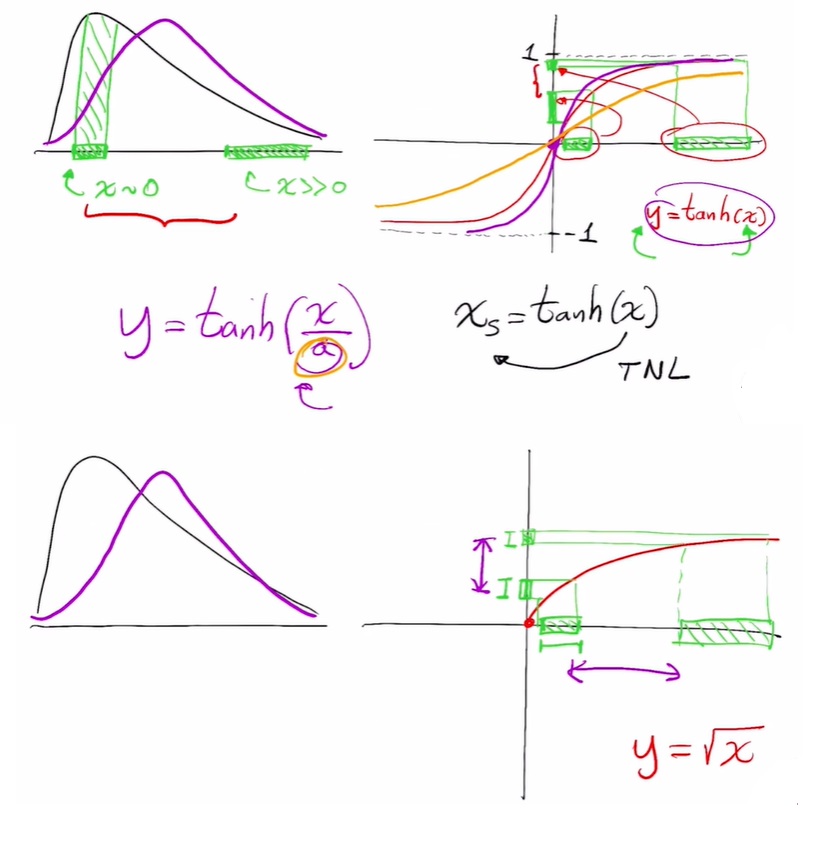 1
x~0
x>>0
y=tanh(x)
-1
y=tanh(x/a)
x_s=tanh(x)
TNL
I
I
y=√x